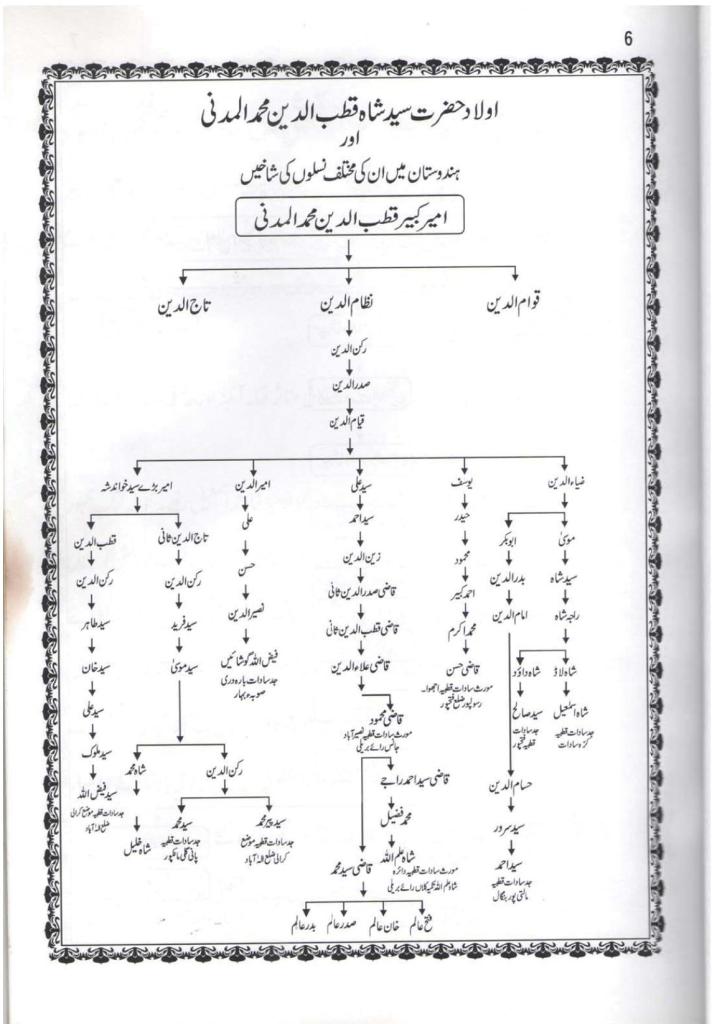 6
اولاد حضرت سید شاہ قطب الدین محمد المدنی
اور
ہندوستان میں ان کی مختلف نسلوں کی شاخیں
امیر کبیر قطب الدین محمد المدنی
قوام الدین نظام الدین تاج الدین
رکن الدین
صدر الدین
قیام الدین
ضیاء الدین یوسف سید علی امیر الدین امیر بڑے سید خواندشہ
موسیٰ ابوبکر حیدر سید احمد علی تاج الدین ثانی قطب الدین
سید شاہ بدر الدین محمود زین الدین حسن رکن الدین رکن الدین
راجہ شاہ امام الدین احمد کبیر قاضی صدر الدین ثانی نصیر الدین سید فرید سید طاہر
محمد اکرم قاضی قطب الدین ثانی
شاہ لاڈ شاہ داؤد قاضی حسن قاضی علاء الدین فیض اللہ گوشائیں سید موسیٰ سید خان
مورث سادات قطبیہ اجھوا۔
رسولپور ضلع فتحپور
جد سادات بارہ دری
صوبہ بہار
شاہ اسمٰعیل سید صالح قاضی محمود سید علی
جد سادات
کڑہ سادات
جد سادات
قطبیہ فتحپور
مورث سادات قطبیہ نصیر آباد
جائس رائے بریلی
سید ملوک
رکن الدین شاہ محمد
حسام الدین قاضی سید احمد راجے سید فیض اللہ
جد سادات قطبیہ موضع کرالی
ضلع الہ آباد
سید سرور محمد فضیل سید پیر محمد سید محمد شاہ خلیل
جد سادات قطبیہ موضع
کرالی ضلع الہ آباد
جد سادات قطبیہ
پانی کلی مانکپور
سید احمد شاہ علم اللہ قاضی سید محمد
جد سادات قطبیہ
مالتی پور بنگال
مورث سادات قطبیہ دائرہ
شاہ علم اللہ تکیہ کلاں رائے بریلی
فتح عالم خان عالم صدر عالم بدر عالم